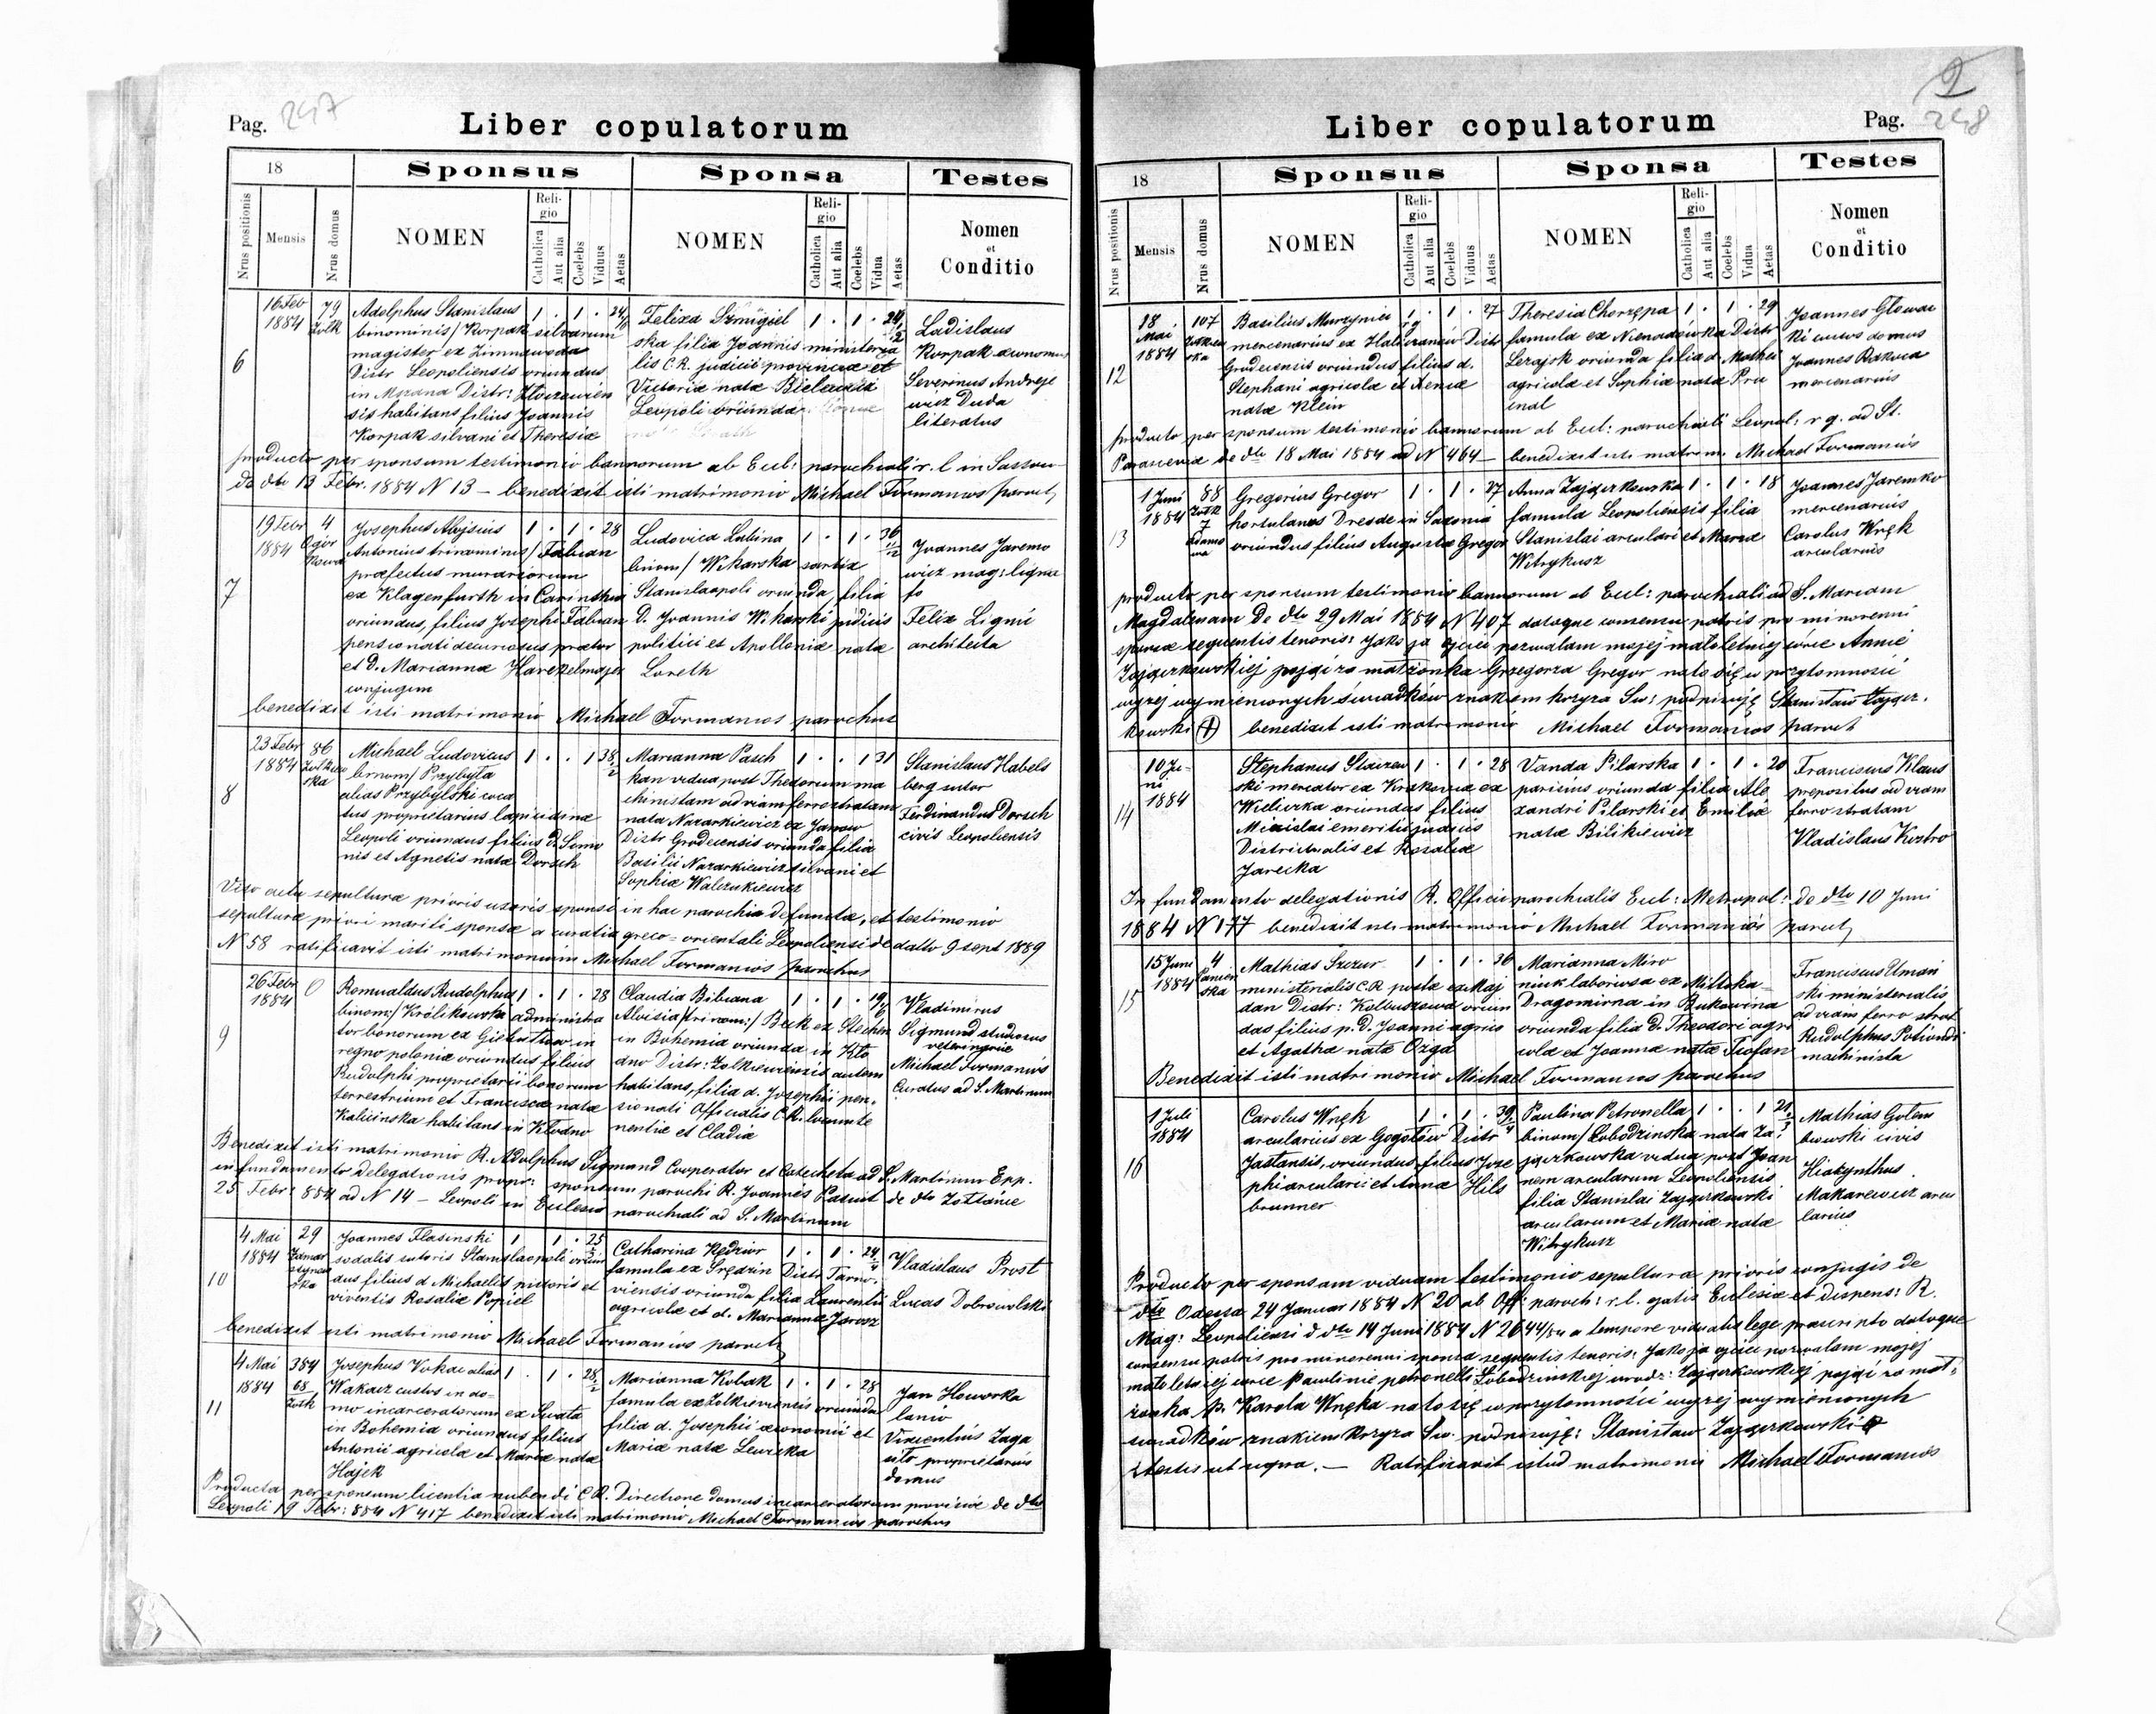 Pag. 247
Liber copulatorum
18
Sponsus
Sponsa
Testes
Nrus positionis
Mensis
Nrus domus
NOMEN
Religio
Catholica
Aut alia
Coelebs
Viduus
Aetas
NOMEN
Religio
Catholica
Aut alia
Coelebs
Vidua
Aetas
Nomen
et
Conditio
6
16 Feb
1884
79
Zolk
Adolphus Stanislaus
binominis/ Korpak silvarum
magister ex Zimnawoda
Distr Leopoliensis oriundus
in Distr: Zloczowien
sis habitans filius Joannis
Korpak silvani et Theresiæ
1 . 1 . 24
Felixa Szmigiel
ska filia Joannis ministeria
lis C.R. judicii provinciæ et
Victoriæ natæ Bielecka
Leopoli oriunda
1 . 1 . 24
Ladislaus
Korpak œconomus
Severinus Andreje
wicz Duda
literatus
producto per sponsum testimonio bannorum ab Eccl: parochiali r. l in Sassow
de dto 13 Febr. 1884 N 13 – benedixit isti matrimonio Michael Formanios paroch
7
19 Febr
1884
4
Ogór
Kowa
Josephus Aloysius
Antonius trinominis/ Fabian
præfectus murariorum
ex Klagenfurth in Carinthia
oriundus, filius Josephi Fabian
pensionati decurionis prætor
et D. Mariannæ Harezelmajer
conjugum
1 . 1 . 28
Ludovica Labina
binom/ Wikarska sartrix
Stanislaopoli oriunda, filia
D. Joannis Wikarski judicis
politici et Apolloniæ natæ
Loreth
1 . 1 . 36
Joannes Jaremo
wicz mag: ligna
fo
Felix Lignú
architecta
benedixit isti matrimonio Michael Formanios parochus
8
23 Febr
1884
86
Zolkiew
ska
Michael Ludovicus
binom/ Przybyła
alias Przybylski coca
tus proprietarius lapicidinæ
Leopoli oriundus filius d. Simo
nis et Agnetis natæ Dorsch
1 . . 1 38
Marianna Pasch
kan vidua post Theodorum ma
chinistam ad viam ferrostratam
nata Nazarkiewicz ex Janow
Distr Grodecensis oriunda filia
Basilii Nazarkiewicz silvani et
Sophiæ Walczukiewicz
1 . . 1 31
Stanislaus Habels
berg sutor
Ferdinandus Dorsch
civis Leopoliensis
Viso actu sepulturæ prioris uxoris sponsi in hac parochia defunctæ, et testimonio
sepulturæ priori mariti sponsæ a curatia greco-orientali Leopoliensi de datto 9 sept 1889
N 58 ratificavit isti matrimonium Michael Formanios parochus
9
26 Febr
1884
0
Romualdus Rudolphus
binom:/ Królikowski administra
tor bonorum ex Giełustow in
regno poloniæ oriundus filius
Rudolphi proprietarii bonorum
terrestrium et Franciscæ natæ
Kalicinska habitans in Klodno
1 . 1 . 28
Claudia Bibiana
Aloisia/trinom:/ Beck ex Stechen
in Bohemia oriunda in Kło
dno Distr: Zolkiewiensis autem
habitans, filia d. Josephi pen.
sionati Officialis C.R. locumte
nentiæ et Cladiæ
1 . 1 . 19
Vladimirus
Sigmund studiosus
veterinariæ
Michael Formaniós
Curatus ad S. Martinum
Benedixit isti matrimonio R. Adolphus Sigmund Cooperator et Catecheta ad S. Martinum Epp.
in fundamento delegationis propr: sponsum parochi R. Joannis Patrut de dto Zoltańce
25 Febr: 884 ad N 14 – Leopoli in Ecclesia parochiali ad S. Martinum
10
4 Mai
1884
29
Zamar
stynow
ska
Joannes Flasinski
sodalis sutoris Stanislaopoli oriun
dus filius d Michaelis pictoris et
viventis Rosaliæ Popiel
1 1 . 25
Catharina Kędzior
famula ex Srędzin Distr Tarno.
viensis oriunda filia Laurentii
agricolæ et d. Mariannæ Jarosz
1 . 1 . 24
Vladislaus Prost
Lucas Dobrowolski
benedixit isti matrimonio Michael Formanios paroch
11
4 Mai
1884
384
68
Zolk
Josephus Vokac alias
Wakacz custos in do-
mo incarceratorum ex Swata
in Bohemia oriundus filius
Antonii agricolæ et Mariæ natæ
Hajek
1 . 1 . 28
Marianna Kobak
famula ex Zolkieviensis oriunda
filia d. Josephii œconomii et
Mariæ natæ Lewicka
1 . 1 . 28
Jan Howorka
lanio
Vincentius Zaga
uto proprietarius
domus
Producta per sponsum licentia nubendi C.R. Directione domus incarceratorum provinciæ de dto
Leopoli 19 Febr: 884 N 417 benedixit isti matrimonio Michael Formanios parochus
Liber copulatorum
Pag. 248
2
18
Sponsus
Sponsa
Testes
Nrus positionis
Mensis
Nrus domus
NOMEN
Religio
Catholica
Aut alia
Coelebs
Viduus
Aetas
NOMEN
Religio
Catholica
Aut alia
Coelebs
Vidua
Aetas
Nomen
et
Conditio
12
18
Mai
1884
107
Zolkiew
ska
Basilius Murzynici
mercenarius ex Distr
Grodecensis oriundus filius d.
Stephani agricolæ et Xeniæ
natæ Klein
1 rg . 1 . 27
Theresia Chorzępa
famula ex Nienadówka Distr
Lezajsk oriunda filia d. Mathei
agricolæ et Sophiæ natæ Pru
cnal
1 . 1 . 29
Joannes Glowac
ki custos domus
Joannes Rakoca
mercenarius
producto per sponsum testimonio bannorum ab Eccl: parochiali Leopol: r g. ad St.
Parascevia de dto 18 Mai 1884 ad N 464 – benedixit isti matrim Michael Formaniós
13
1 Juni
1884
88
Zolk
7
Adamo
wa
Gregorius Gregor
hortulanus Dresde in Saxonia
oriundus filius Augusta Gregor
1 . 1 . 27
Anna Zajączkowska
famula Leopoliensis filia
Stanislai arculari et Mariæ
Witrykusz
1 . 1 . 18
Joannes Jaremko
mercenarius
Carolus Wnęk
arcularius
producto per sponsum testimonio bannorum ab Eccl: parochiali ad S. Mariam
Magdalenam De dto 29 Mai 1884 N 407 datoque consensu patris pro minorenni
sponsæ sequentis tenoris: Jako ja ojciec pozwalam mojej małoletniej córce Annie
Zajączkowskiej pojąć za małżonka Grzegorza Gregor nato się w przytomności
wyżej wymienionych świadków znakiem krzyza Sw: podpisuję Stanisław Zającz.
kowski (+) benedixit isti matrimonio Michael Formanios paroch
14
10 Ju-
ni
1884
Stephanus Stoiczew
ski mercator ex Krakowia ex
Wieliczka oriundus filius
Micislai emeriti judicis
Districtualis et Rosaliæ
Jarecka
1 . 1 . 28
Vanda Pilarska
parisius oriunda filia Ale
xandri Pilarski et Emiliæ
natæ Bilikiewicz
1 . 1 . 20
Franciscus Klaus
prepositus ad viam
ferrostratam
Vladislaus Kostro
In fundamento delegationis R. Officii parochialis Eccl: Metropol: de dto 10 Juni
1884 N 177 benedixit isti matrimonio Michael Formaniós paroch
15
15 Juni
1884
4
Panien
ska
Mathias Szczur
ministerialis C.R. postæ ex Maj
dan Distr: Kolbuszowa oriun
dus filius p.D. Joanni agricis
et Agathæ natæ Ozga
1 . 1 . 36
Marianna Miro
niuk laboriosa ex Mittoka-
Dragomirna in Bukowina
oriunda filia d. Theodori agri
colæ et Joannæ natæ Teofan
Franciscus Uman
ski ministerialis
ad viam ferro strat
Rudolphus Potiunde
machinista
Benedixit isti matrimonio Michael Formanios parochus
16
1 Juli
1884
Carolus Wnęk
arcularius ex Gogołów Distr
Jastansis, oriundus filius Jose
phi arcularii et Anna Hils
brunner
1 . 1 . 39
Paulina Petronella
binom/ Łobodzinska nata Za
jączkowska vidua post Joan
nem arcularum Leopoliensis
filia Stanislai Zajączkowski
arcularum et Mariæ natæ
Witrykusz
1 . . 1 21
Mathias Golem
biowski civis
Hiakynthus
Makarewicz arcu
larius
Producto per sponsam viduam testimonio sepulturæ prioris conjugis de
dto Odessa 24 Januar 1884 N 20 ab Off: paroch: r.l. ejatis Ecclesiæ et dispens: R.
Mag: Leopoliensi d dto 14 Juni 1884 N 2644/84 a tempore viduatus lege præscripto datoque
consensu patris pro minorenni sponsa sequentis tenoris: Jako ja ojciec pozwalam mojej
małoletniej córce Pawlinie petronelli Łobodzinskiej urodz: Zajączkowskiej pojąć za mał-
żonka /p. Karola Wnęka nato się w przytomności wyżej wymienionych
świadków znakiem krzyza Sw. podpisuję: Stanisław Zajączkowski +
testes ut supra. — Ratificavit istud matrimonii Michael Formanios